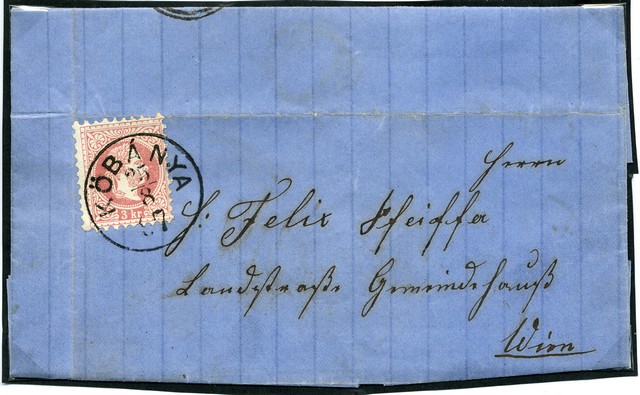 KÖBÁNYA
25
8
67
3 kr
Herrn
H: Felix Pfeiffer
Landstraße Gemeindehauß
Wien